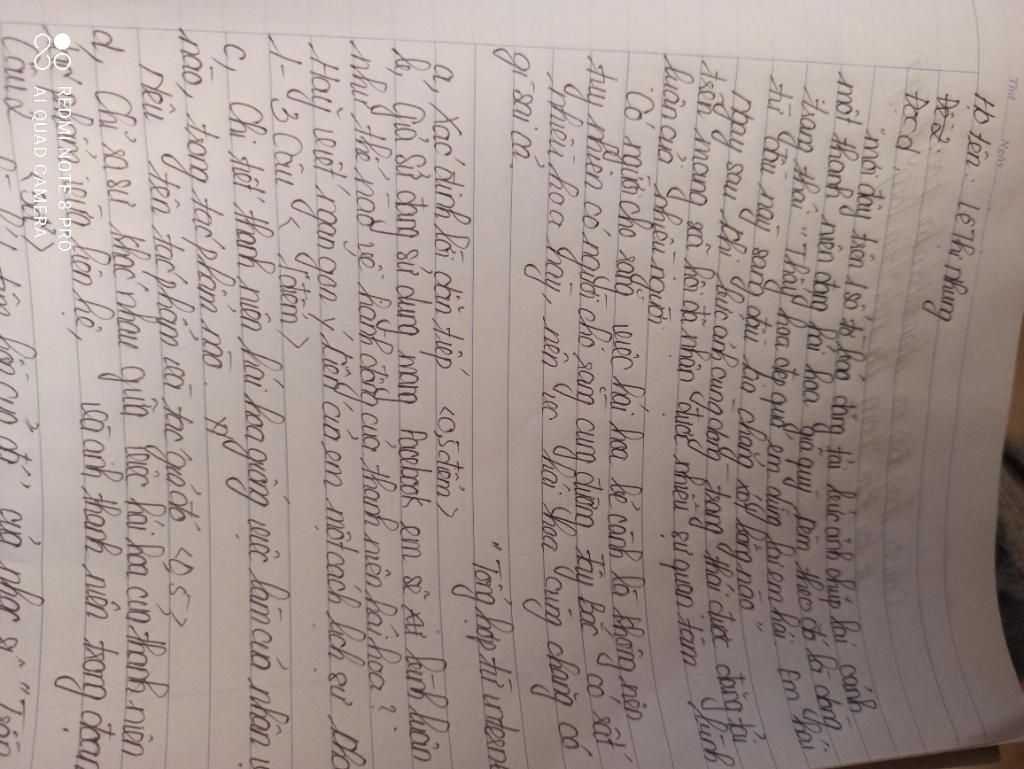 Thứ Ngày
Họ tên: Lê Thị Nhung
Đề 2
Đọc
"mới đây trên 1 số tờ báo đăng tải bức ảnh chụp lại cảnh
một thanh niên đang hái hoa giã quỳ kèm theo đó là dòng
trạng thái "Thấy hoa đẹp quá em dừng lại em hái. Em phải
từ cầu này sang cầu kia chẳng xót lòng nào"
Ngay sau khi bức ảnh cùng dòng trạng thái được đăng tải
trên mạng xã hội đã nhận được nhiều sự quan tâm bình
luận của mọi người.
Có người cho rằng việc hái hoa bẻ cành là không nên
tuy nhiên có người cho rằng cung đường tây Bắc có rất
nhiều hoa này, nên việc hái hoa cũng chẳng có
gì sai cả.
"Tổng hợp từ internet
a, Xác định lời dẫn trực tiếp <0,5 điểm>
b, Giả sử đang sử dụng mạng facebook em sẽ bình luận
như thế nào về hành động của thanh niên hái hoa?
Hãy viết ngắn gọn ý kiến của em một cách lịch sự
1-3 câu <1 điểm>
c, Chi tiết thanh niên hái hoa giống việc làm của nhân v
nào, trong tác phẩm nào.
nêu tên tác phẩm và tác giả đó <0,5>
d, Chỉ ra sự khác nhau giữa việc hái hoa của thanh niên
và anh thanh niên trong đoạn
REDMI NOTE 8 PRO
AI QUAD CAMERA